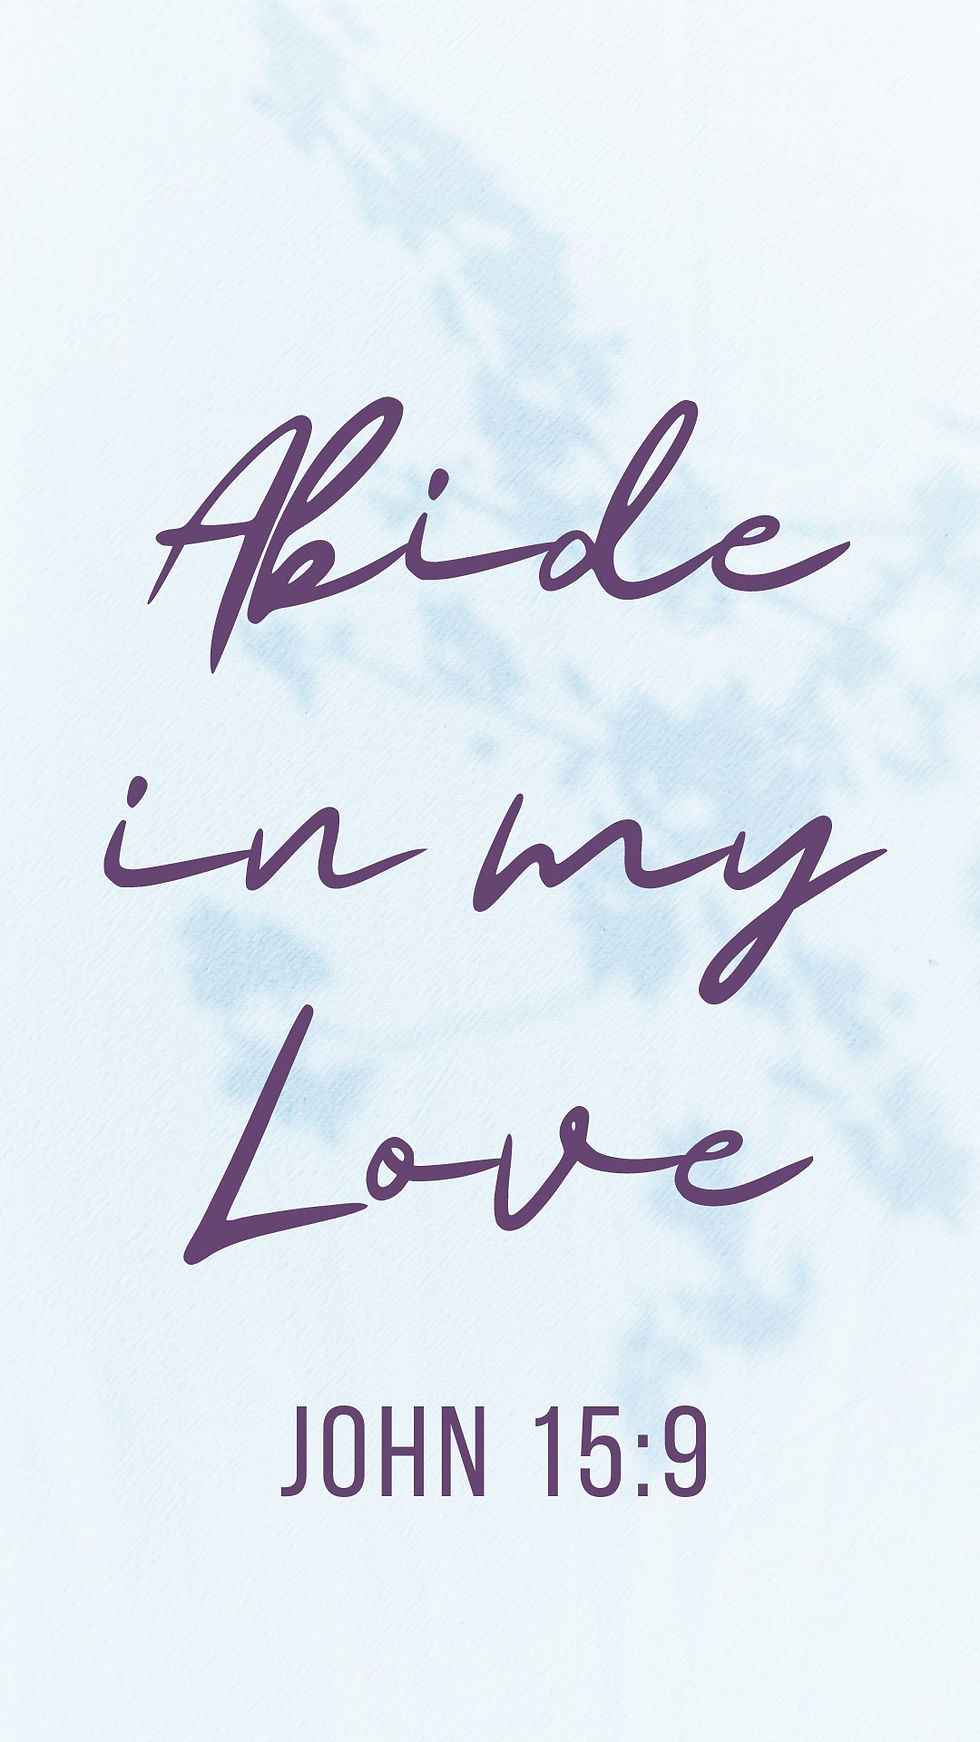 Abide
in my
Love
JOHN 15:9